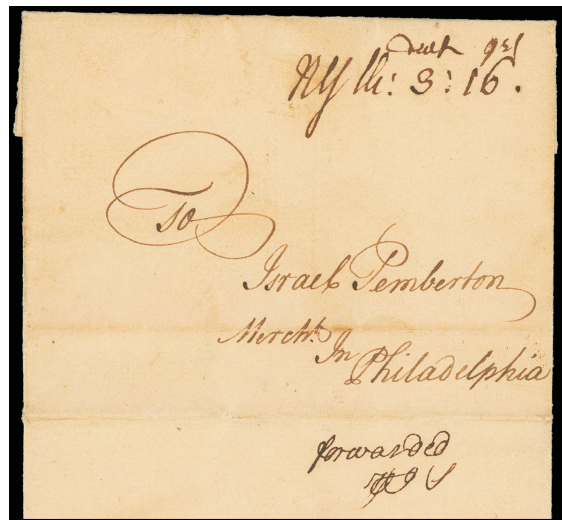 NY lh: 3: 16.
To
Israel Pemberton
Mercht.
In
Philadelphia
forwarded